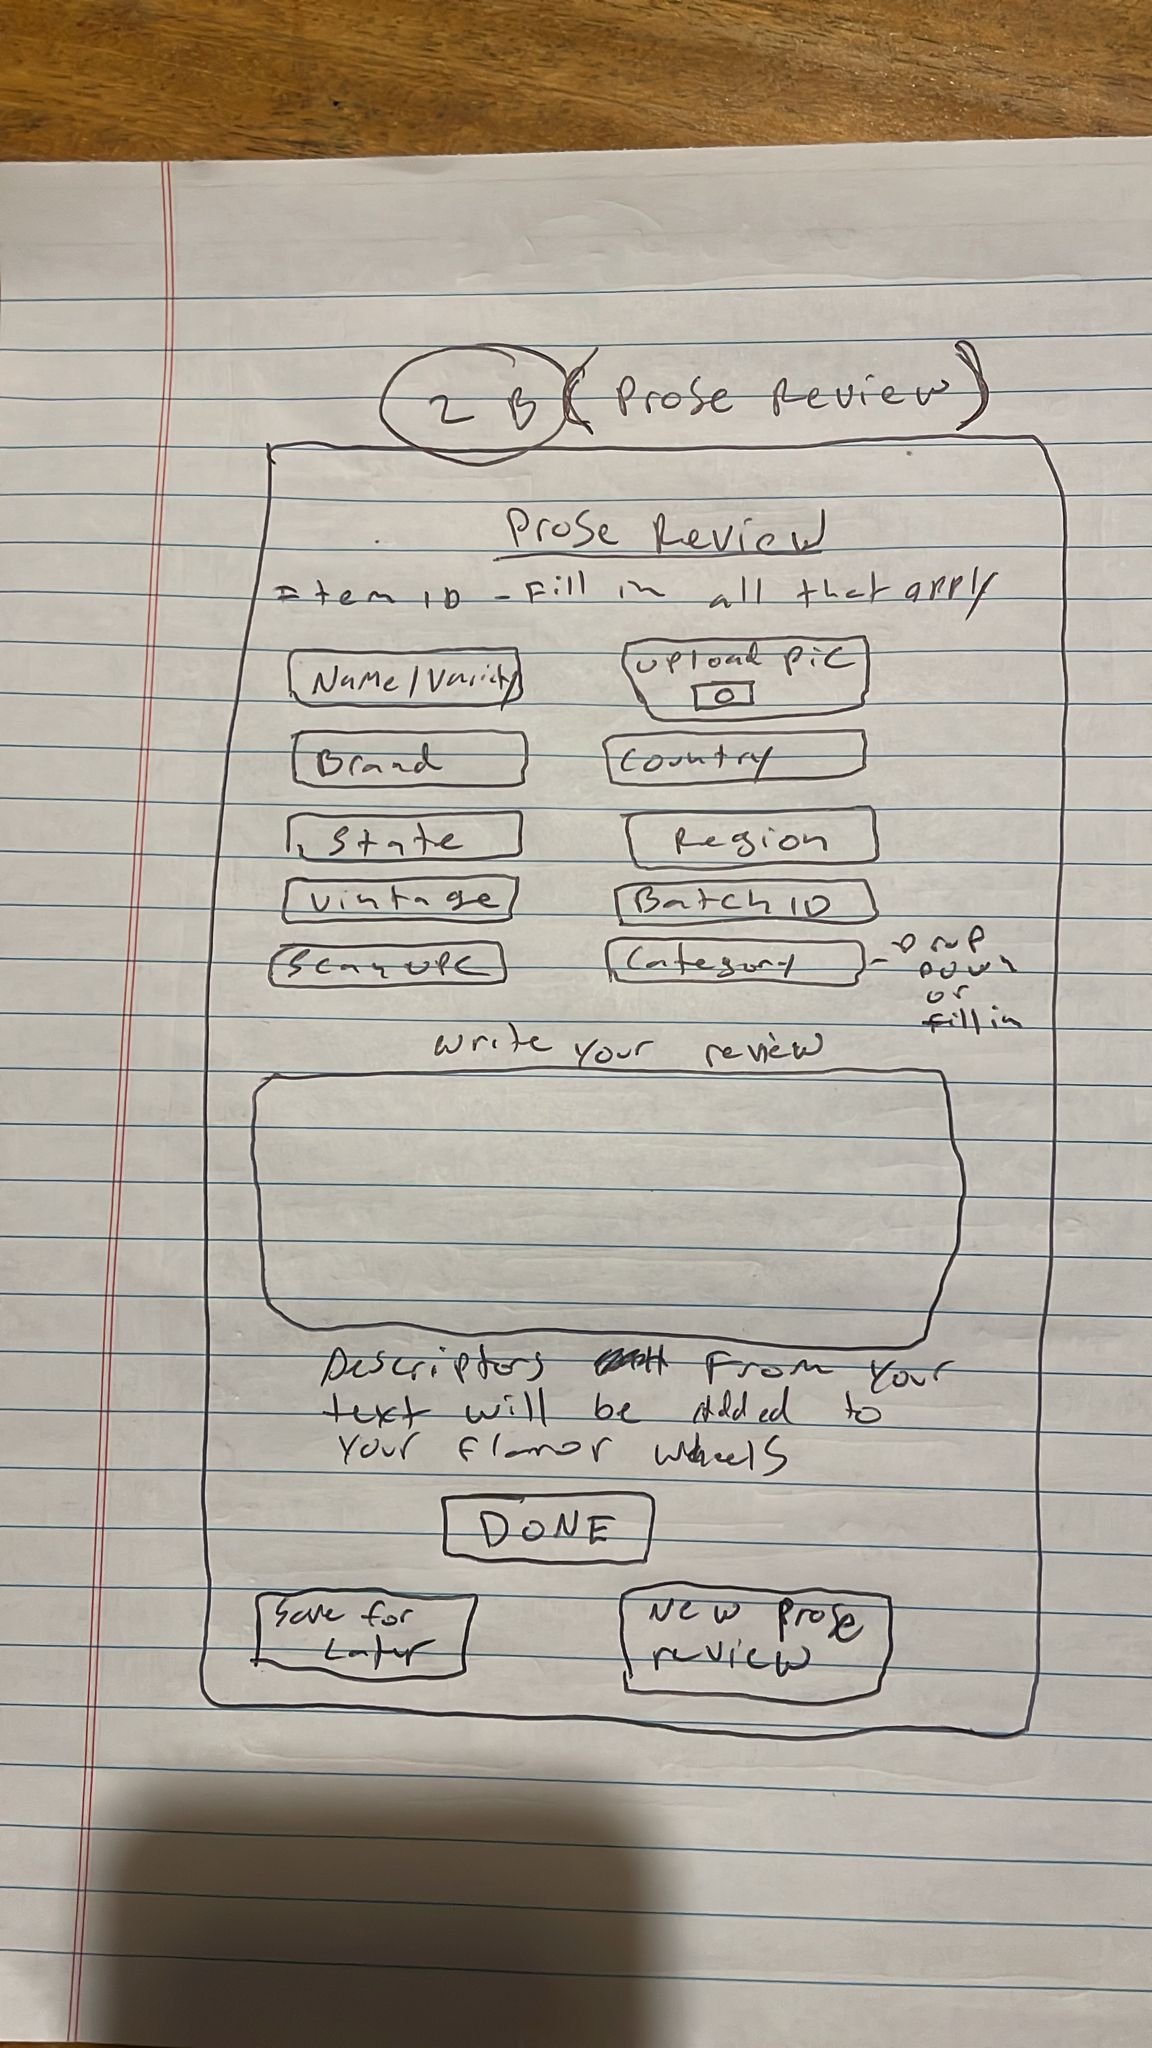 2 B (Prose Review)
Prose Review
Item ID - Fill in all that apply
Name/Variety
Upload pic
Brand
Country
State
Region
Vintage
Batch ID
Scan UPC
Category - Drop
Down
or
fill in
Write your review
Descriptors From your
text will be Added to
your flavor wheels
DONE
Save for
Later
New prose
review